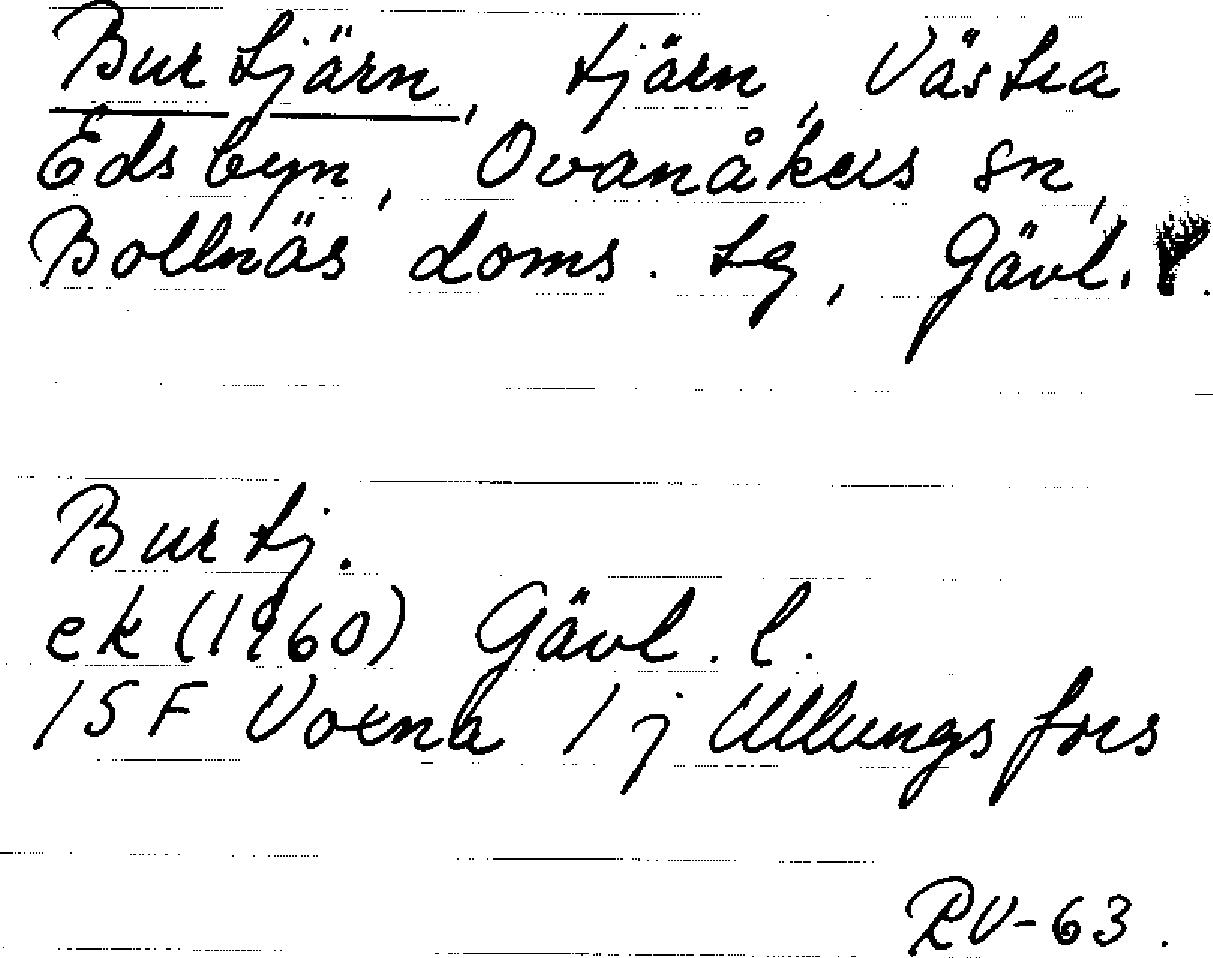 Burtjärn, tjärn, Västra
Edsbyn, Ovanåkers sn,
Bollnäs doms. tg, Gävl. l.
Burtj.
ek (1960) Gävl. l.
15 F Voxna 1 j Ullungsfors
RV-63.